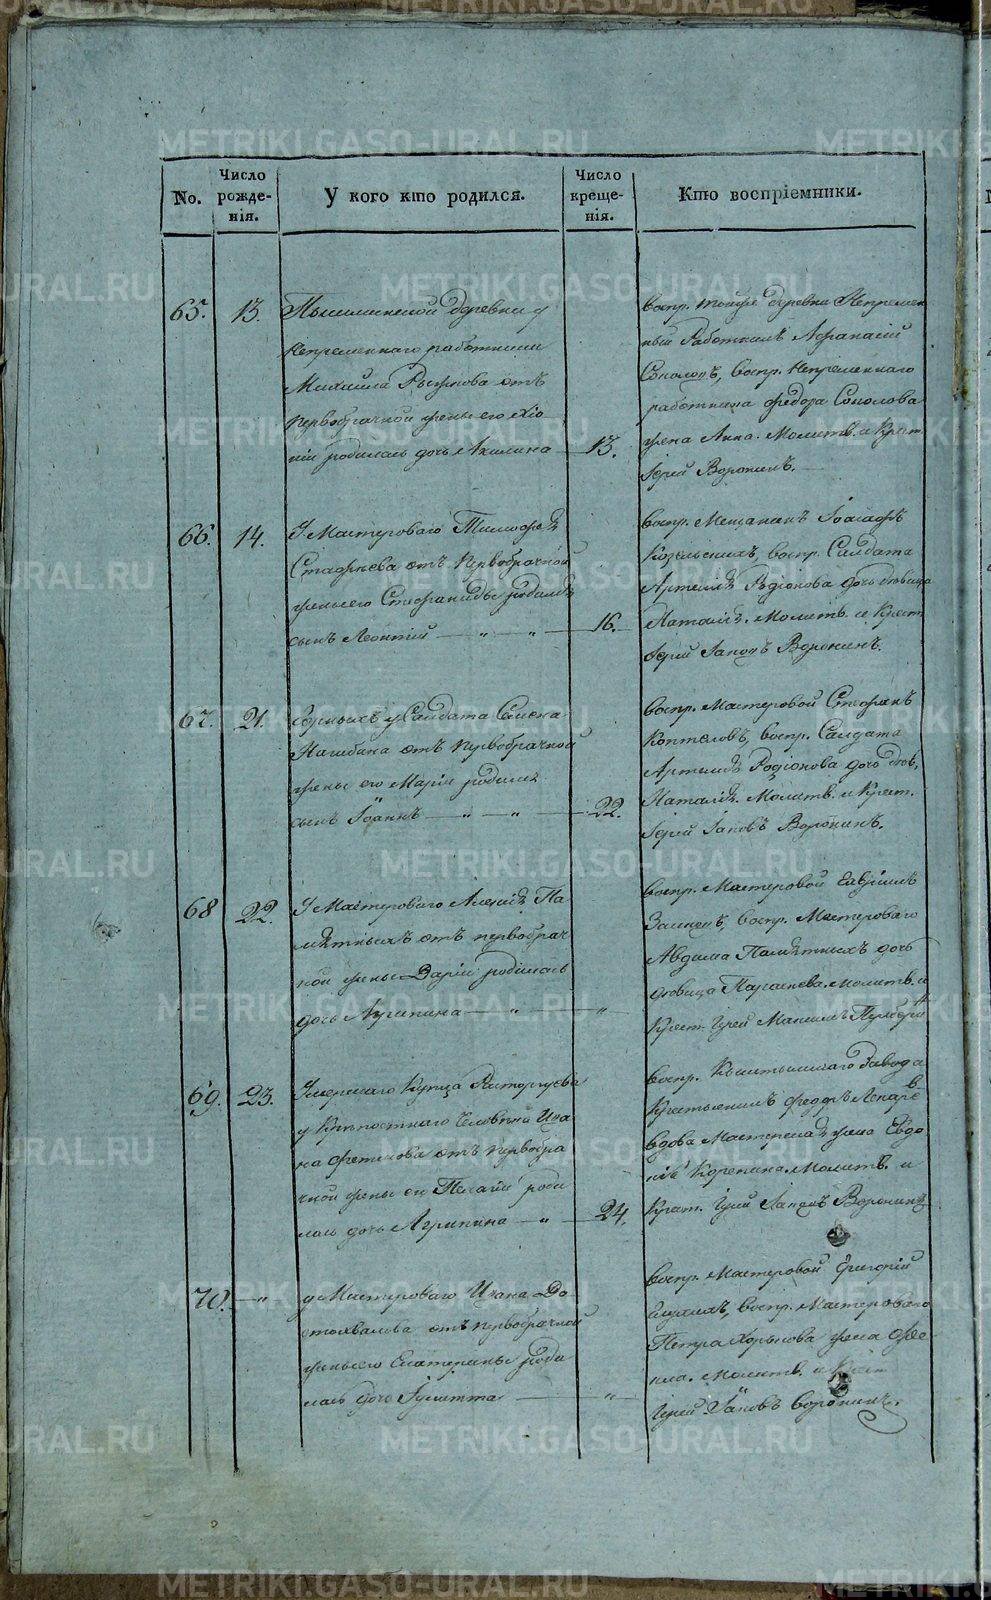 No.
Число рожде-нія.
У кого кто родился.
Число креще-нія.
Кто воспріемники.
65.
13.
Пышминской деревни у
Непременнаго работника
Михаила Рыжкова отъ
первобрачной жены его Хіо
ніи родилась дочь Акилина
13.
воспр. тойже деревни Непремен
ный Работникъ Афанасій
Соколовъ, воспр. Непременнаго
работника Федора Соколова
жена Анна. Молитв. и Крест.
Іерей Воронинъ.
66.
14.
У Мастероваго Тимофея
отъ первобрачной
жены его Стефаниды родился
сынъ Леонтій — „ — „ —
16.
воспр. Мещанинъ Іоасафъ
воспр. Салдата
Артемія Родіонова дочь дѣвица
Наталія. Молитв. и Крест.
Іерей Іаковъ Воронинъ.
67.
21.
у Салдата Семена
Нагибина отъ первобрачной
жены его Маріи родился
сынъ Іоаннъ — „ — „ —
22.
воспр. Мастеровой Стефанъ
Коптеловъ, воспр. Салдата
Артемія Родіонова дочь дѣв.
Наталія. Молитв. и Крест.
Іерей Іаковъ Воронинъ.
68
22.
У Мастероваго Алексія Па
мятныхъ отъ первобрач
ной жены Даріи родилась
дочь Агрипина — „ —
„
воспр. Мастеровой Евфимъ
воспр. Мастероваго
Авдима Памятныхъ дочь
дѣвица молитв. и
Крест. Іерей Максимъ
69.
23.
Умершаго Купца Расторгуева
у Крѣпостнаго Человѣка Ива
на отъ первобра
чной жены ея Пелагіи роди
лась дочь Агрипина — „ —
24.
воспр. Кыштымскаго Завода
Крестьянинъ Федоръ
вдова жена Евдо
кія Корепина. Молитв. и
Крест. Іерей Іаковъ Воронинъ
70.
— „
у Мастероваго Ивана До
стовалова отъ первобрачной
жены его Екатерины роди
лась дочь Іулитта
„
воспр. Мастеровой Григорій
воспр. Мастероваго
Петра Хорькова жена Фек
ла. Молитв. и Крест
Іерей Іаковъ Воронинъ.
METRIKI.GASO-URAL.RU